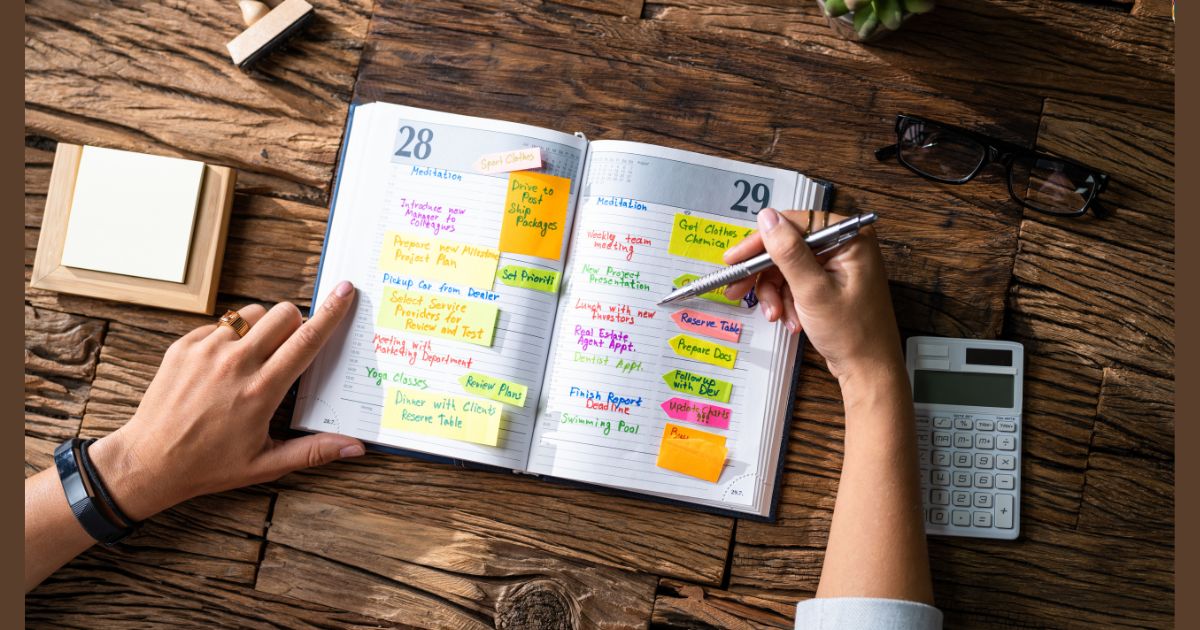 28
Sport Clothes
Meditation
Drive to
Post
Ship
Packages
Introduce new
Manager to
Colleagues
Prepare new Milestone
Project Plan
Set Prioriti
Pickup Car from Dealer
Select Service
Providers for
Review and Test
Meeting with
Marketing Department
Yoga Classes
Review Plans
Dinner with Clients
Reserve Table
28.7.
29
August
Meditation
Get Clothes f
Chemical
Weekly team
meeting
New Project
Presentation
Lunch with new
Investors
Reserve Table
Real Estate
Agent Appt.
Prepare Docs
Dentist Appt.
Followup
with Dev
Finish Report
Deadline
Update Charts
!!!
Swimming Pool
29.7.
%
MR
M-
M+
7
8
9
4
5
6
1
2
3
0
+